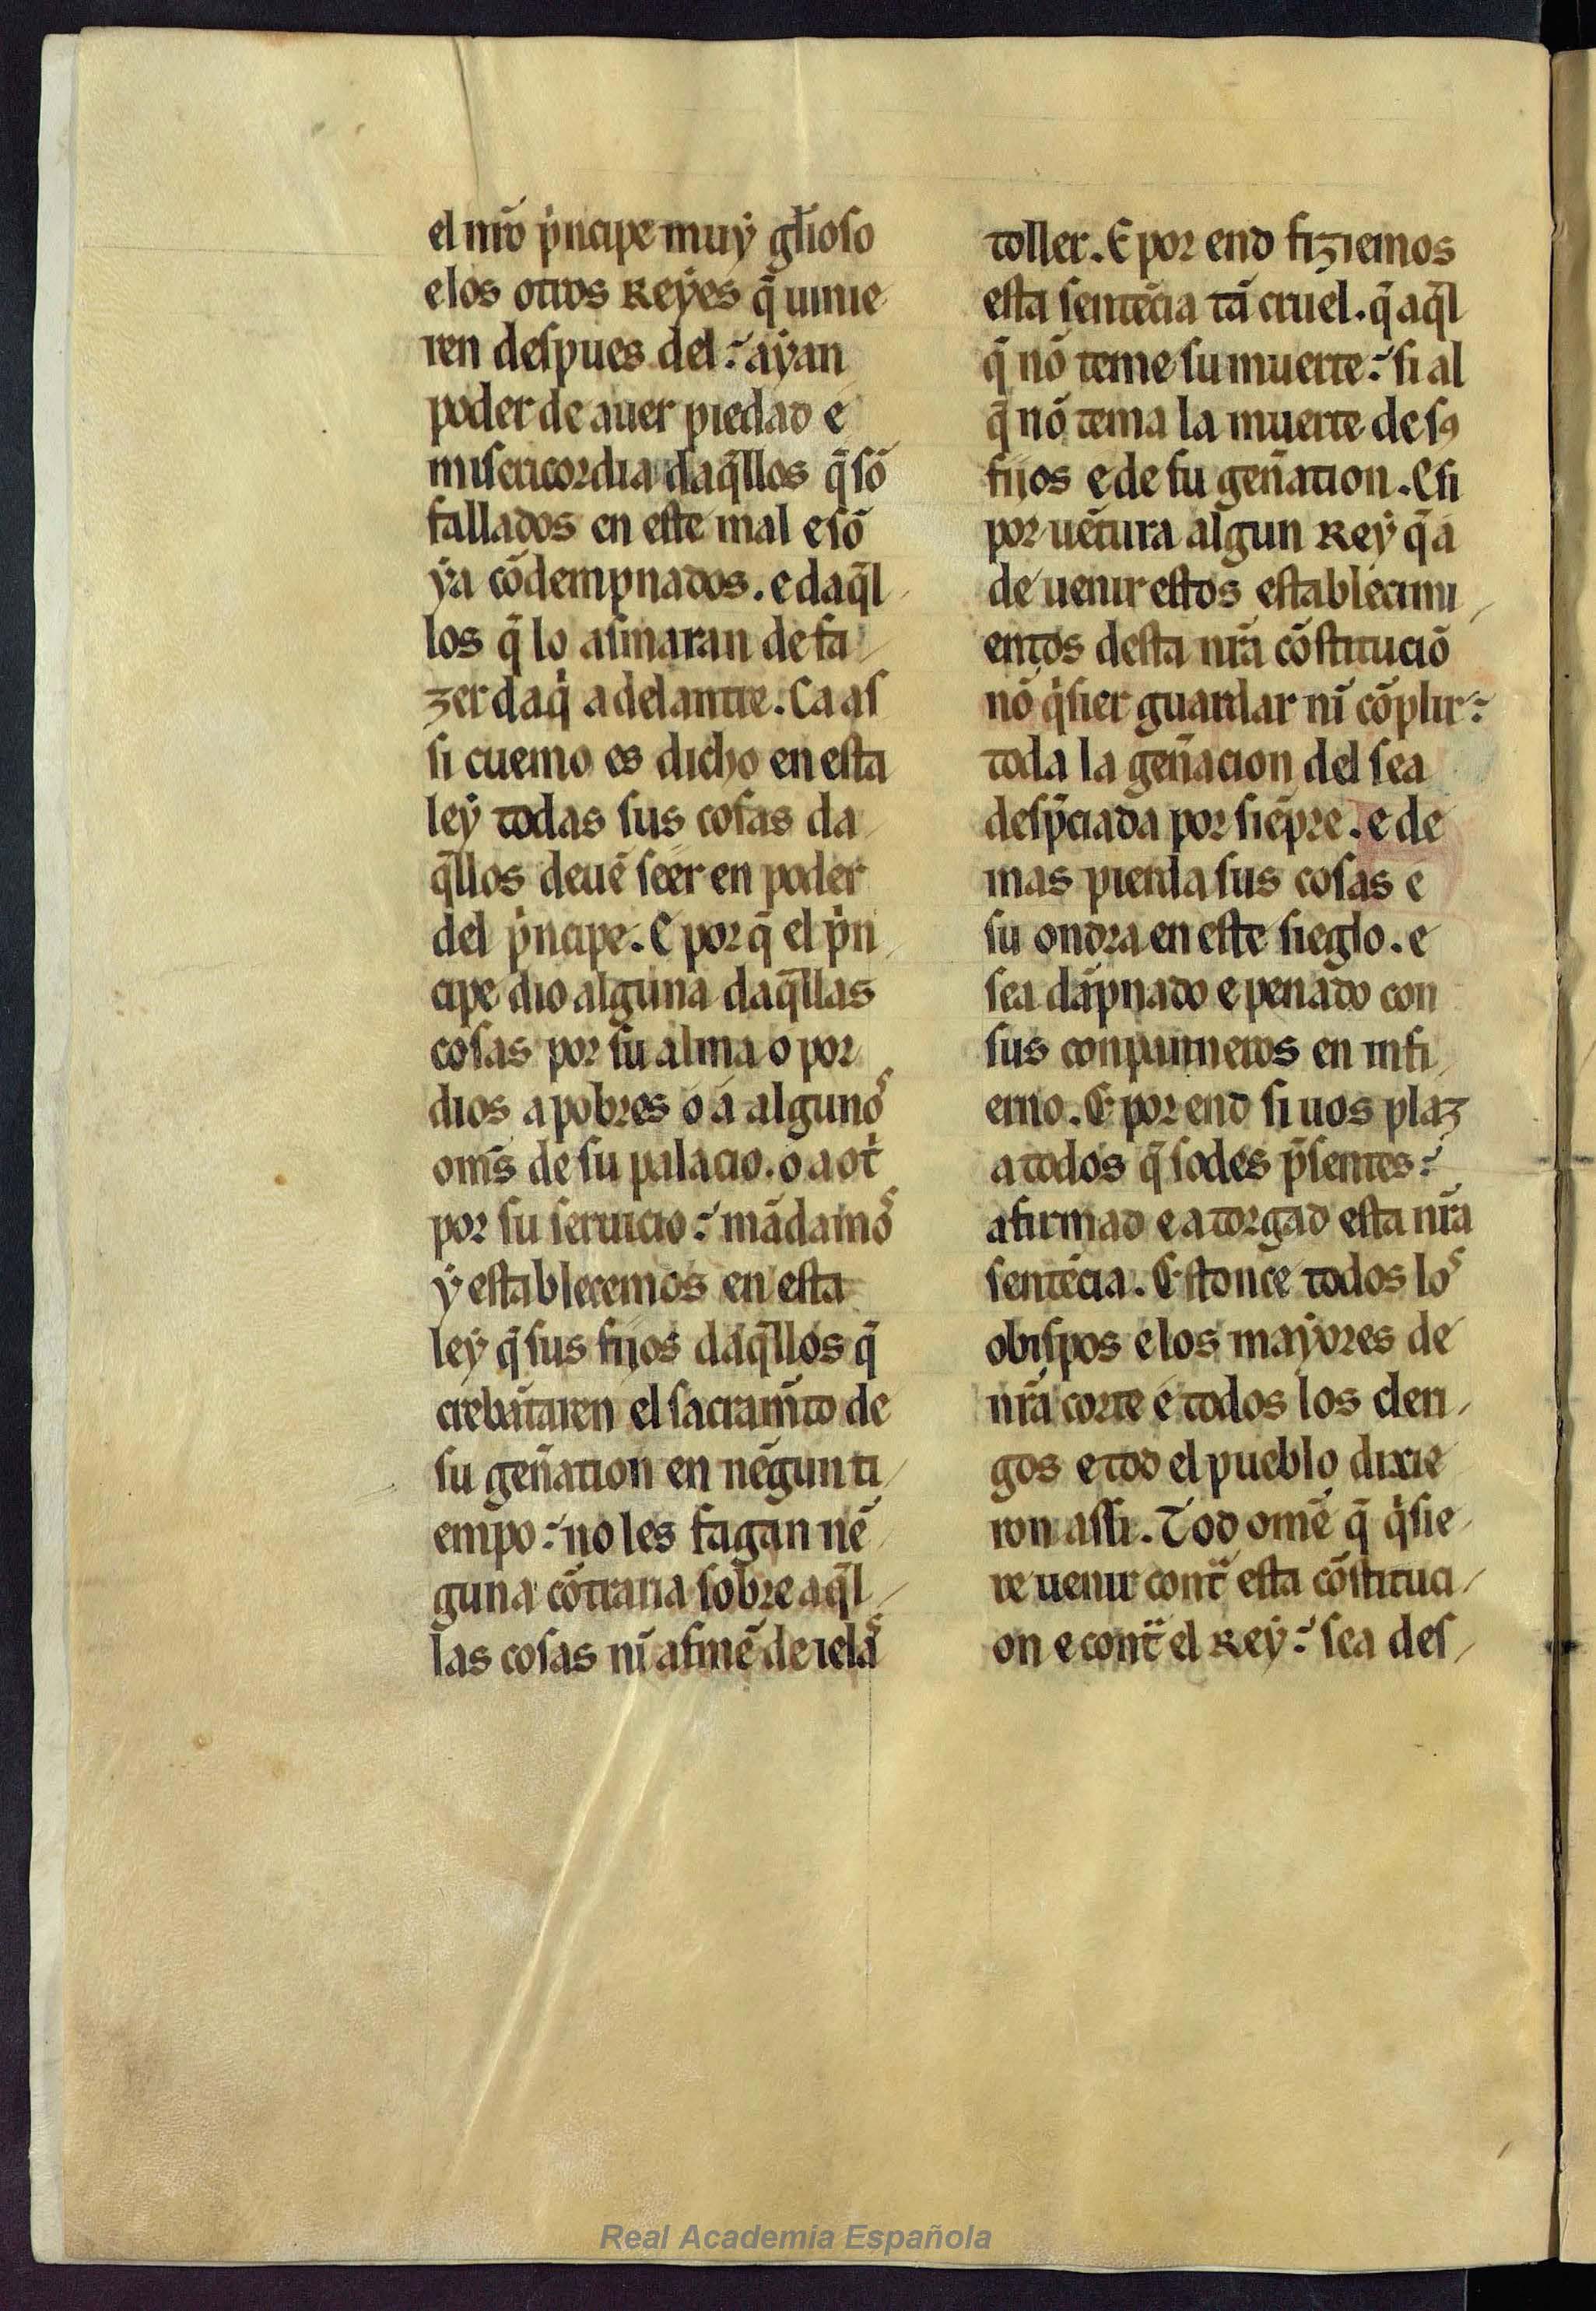 el nr̃o pͥncipe muẏ gl̃ioſo
e los otros Reẏes q̃ uinie
ren deſpues del aẏan
poder de auer piedad e
miſericordia daq̃llos q̃ ſõ
fallados en eſte mal e ſõ
ẏa cõdempnados . e daq̃l
los q̃ lo aſmaran de fa
zer daqͥ adelantre . Ca aſ
ſi cuemo es dicho en eſta
leẏ todas ſus coſas da
q̃llos deuẽ ſeer en poder
del pͥncipe . E por q̃ el pͥn
cipe dio alguna daq̃llas
coſas por ſu alma o por
dios a pobres o a algunos
om̃s de ſu palacio . o a otͥ
por ſu seruicio mãdamos
ẏ eſtablecemos en eſta
leẏ q̃ ſus fijos daq̃llos q̃
crebãtaren el ſacram̃to de
ſu geñation en nẽgun ti
empo no les fagan nẽ
guna cõtraria ſobre aq̃l
las coſas nĩ aſmẽ de ielas
toller . E por end fiziemos
eſta ſentẽcia tã cruel . q̃ aq̃l
q̃ nõ teme ſu muerte ſi al
q̃ nõ tema la muerte de ſꝯ
fijos e de ſu geñation . E ſi
por uẽtura algun Reẏ q̃ a
de uenir eſtos eſtablecimi
entos deſta nr̃a cõſtituciõ
nõ qͥſier guardar nĩ cõplir
toda la geñacion del ſea
deſp̃ciada por ſiẽpre . e de
mas pierda ſus coſas e
ſu ondra en eſte ſieglo . e
ſea dãpnado e penado con
ſus conpanneros en infi
erno . E por end ſi uos plaz
a todos q̃ ſodes p̃ſentes
afirmad e atorgad eſta nr̃a
ſentẽcia . Eſtonce todos los
obiſpos e los maẏores de
nr̃a corte e todos los cleri
gos e tod el pueblo dixie
ron aſſi . Tod omẽ q̃ qͥſie
re uenir contᷓ eſta cõſtituci
on e contᷓ el Reẏ ſea deſ
Real Academia Española